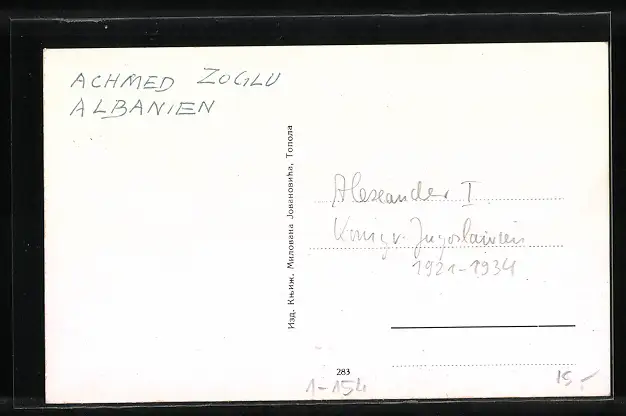 ACHMED ZOGLU
ALBANIEN
Изд. Књиж. Милована Јовановића, Топола
Alexander I
König v. Jugoslawien
1921-1934
283
1-154
15,-